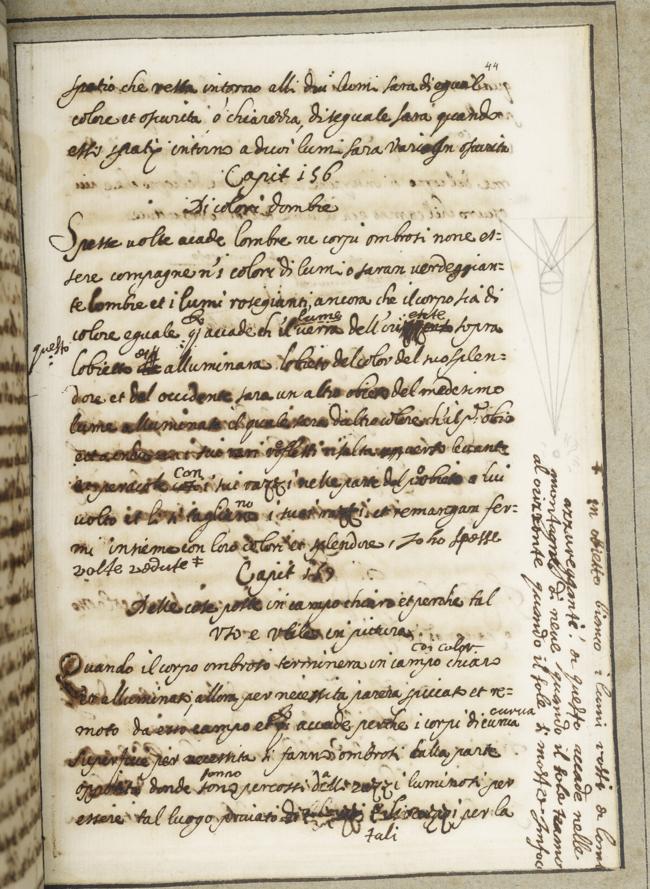 44
spatio che resta intorno alli dui lumi sara di eguale
colore et oscurita o chiarezza, diseguale sara quando
essi spatij intorno a duoi lumi sara varia in oscurita
Capit 156
Di colori dombre
Spesse volte acade lombre ne corpi ombrosi none es=
sere compagne n i colori di lumi o saran verdeggian=
te lombre et i lumi rosegianti, ancora che il corpo sia di
colore eguale accade ch il lume verra dell'oriente sopra
questo
lobietto alluminara lobieto del color del suo splen=
dore et del occidente sara un altro obieto del medesimo
lume alluminato el quale sara daltro colore ch il p.o obie
i suoi rari reflessi risalta verso levante
et percote con i sui razzi nelle parte del p.o obieto a lui
volto et li si tagliano i suoi razzi et remangan fer=
mi insieme con loro colori et splendore, Io ho spesse
volte vedute
Capit 157
Delle cose poste in campo chiaro et perche tal
uso e utile in pittura
Quando il corpo ombroso terminera in campo chiaro
con color
et alluminato, allora per necessita parera spiccato et re=
moto da esso campo et accade perche i corpi di curva
curva
superficie per necessita si fanno ombrosi nella parte
opposita donde sonno percossi dalli razzi luminosi per
essere tal luogo privato di tali razzi per la
tali
+ in obietto bianco i lumi rossi et lombre
azzureggianti: et questo accade nelle
montagne di neve quando il sole
al orizonte quando il sole si mostra infoc